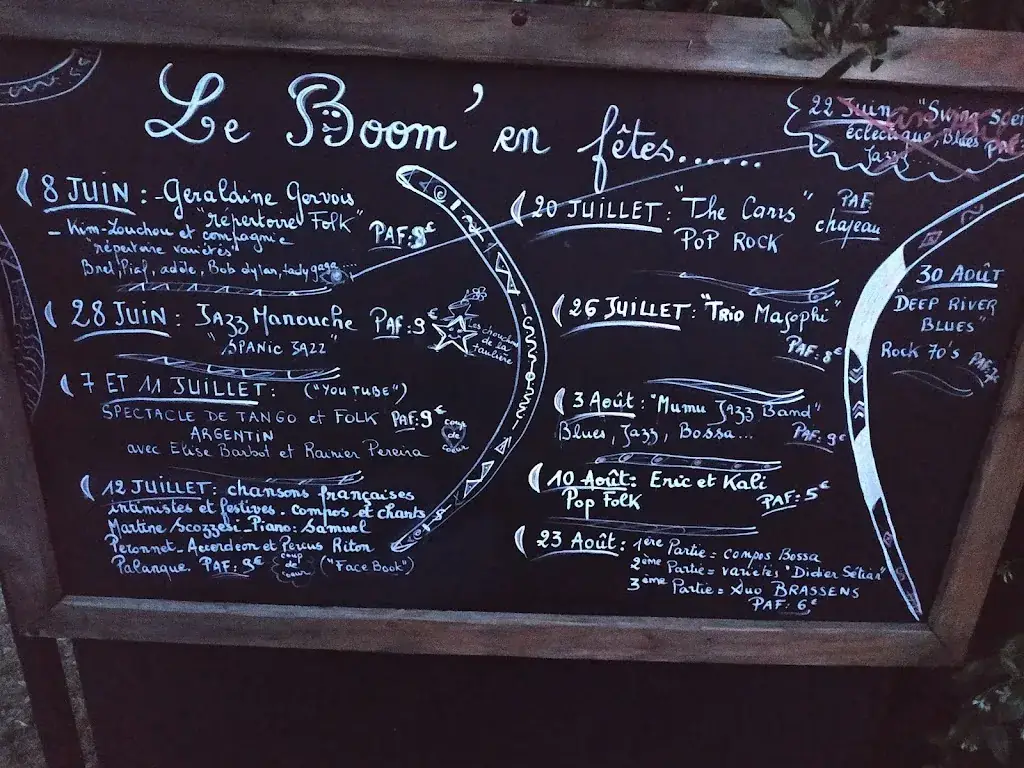 Le Boom' en fêtes......
8 JUIN : - Geraldine Gervois
"répertoire Folk"
- Kim-Zouchou et compagnie
"répertoire variétés"
PAF:
Brel, Piaf, adèle, Bob dylan, lady gaga...
28 JUIN : JAZZ Manouche PAF: 9€
"SPANIC JAZZ"
Les chouchous
de la
taulière
7 ET 11 JUILLET : ("YOU TUBE")
SPECTACLE DE TANGO et FOLK PAF: 9€
ARGENTIN
avec Elise Barbot et Rainier Pereira
coup
de
coeur
12 JUILLET : chansons françaises
intimistes et festives. compos et chants
Martine Scozzesi - Piano: Samuel
Peronnet - Accordeon et Percus Riton
Palanque. PAF: 9€ ("Face Book")
coup
de
coeur
22 Juin "Swing
éclectique, Blues
Jazz...
20 JUILLET : "The Cars" PAF
POP ROCK chapeau
26 JUILLET : "Trio Magophi"
PAF: 8€
3 Août : "Mumu Jazz Band"
Blues, Jazz, Bossa... PAF: 9€
10 Août : Eric et Kali
Pop Folk PAF: 5€
23 Août : 1ère Partie = compos Bossa
2ème Partie = variétés "Didier Sétian"
3ème Partie = Duo BRASSENS
PAF: 6€
30 AOÛT
"DEEP RIVER
BLUES"
Rock 70's PAF: